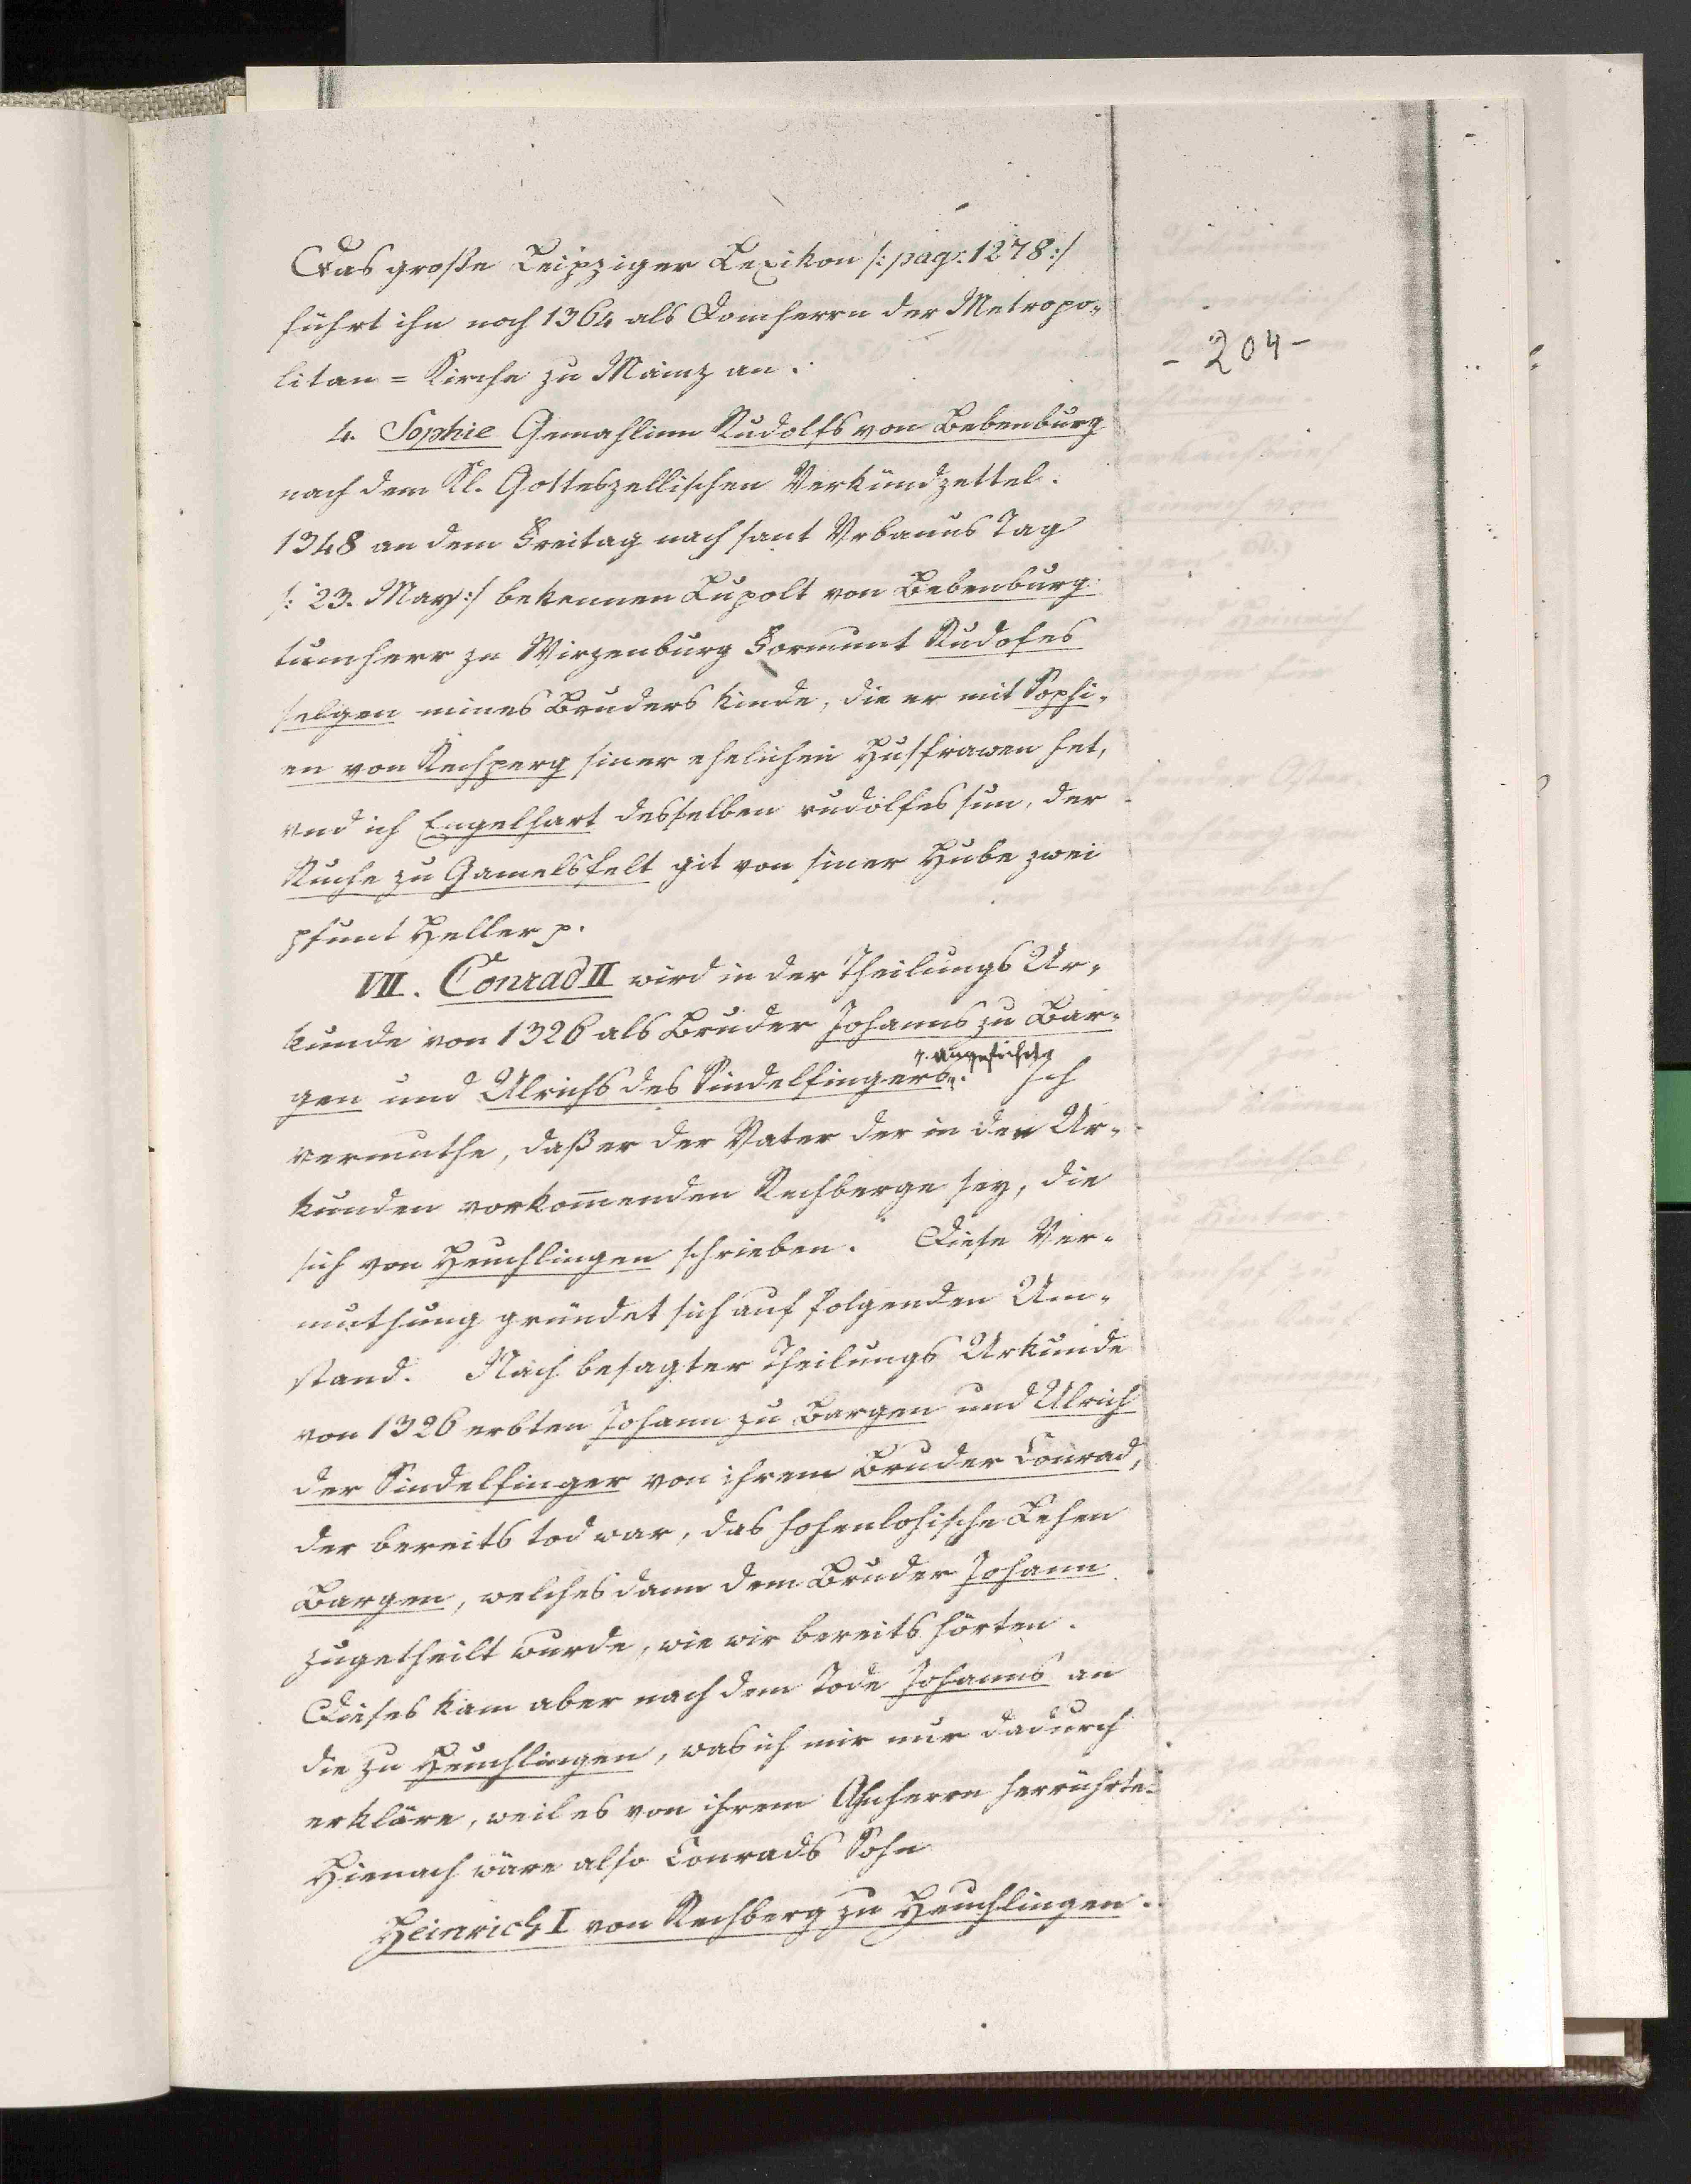 Das große Leipziger Lexikon /: pag: 1278 :/
führt ihn noch 1364 als Domherrn der Metropo-
litan = Kirche zu Mainz an.
- 204 -
4. Sophie Gemahlinn Rudolfs von Bebenburg
nach dem Kl. Gotteszellischen Verkündzettel.
1348 an dem Freitag nach sant Vrbanus Tag
/: 23. May :/ bekennen Lupolt von Bebenburg
tumherr ze Wirzenburg Formunt Rudofes
selgen mines Bruders Kinde, die er mit Sophi-
en von Rechperg siner ehelichen Husfrawen het,
vnd ich Engelhart desselben rudolfes sun, der
Ruche zu Gamelsfelt git von siner Hube zwei
pfunt Heller p.
VII. Conrad II wird in der Theilungs Ur-
kunde von 1326 als Bruder Johanns zu Bar-
gen und Ulrichs des Sindelfingers angeführt. Ich
vermuthe, daß er der Vater der in den Ur-
kunden vorkom̅enden Rechberge sey, die
sich von Heuchlingen schrieben. Diese Ver-
muthung gründet sich auf folgenden Um-
stand. Nach besagter Theilungs Urkunde
von 1326 erbten Johann zu Bargen und Ulrich
der Sindelfinger von ihrem Bruder Conrad,
der bereits tod war, das hohenlohische Lehen
Bargen, welches dann dem Bruder Johann
zugetheilt wurde, wie wir bereits hörten.
Dieses kam aber nach dem Tode Johanns an
die zu Heuchlingen, was ich mir nur dadurch
erkläre, weil es von ihrem Ahnherrn herrührte.
Hienach wäre also Conrads Sohn
Heinrich I von Rechberg zu Heuchlingen.